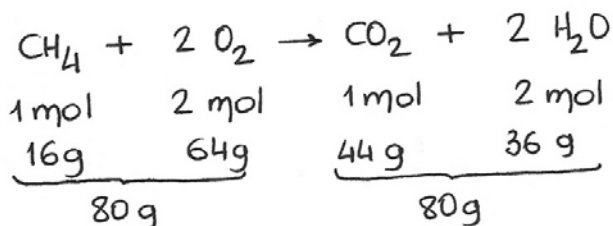 CH₄ + 2 O₂ → CO₂ + 2 H₂O
1 mol 2 mol 1 mol 2 mol
16g 64g 44 g 36 g
80 g 80g